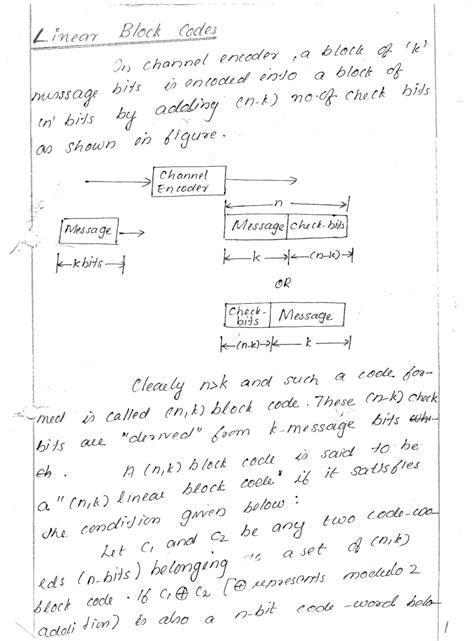 Linear Block Codes
In channel encoder, a block of 'k'
message bits is encoded into a block of
'n' bits by adding (n-k) no.of check bits
as shown in figure.
Channel
Encoder
n
Message
Message check-bits
k bits
k (n-k)
OR
Check-
bits
Message
(n-k) k
Clearly n>k and such a code for-
med is called (n,k) block code. These (n-k) check
bits are "derived" from k-message bits whi-
ch.
A (n,k) block code is said to be
a "(n,k) linear block code" if it satisfies
the condition given below:
Let C1 and C2 be any two code-wo-
rds (n-bits) belonging a set of (n,k)
block code. If C1 ⊕ C2 [⊕ represents modulo 2
addition) is also a n-bit code-word belo-
1